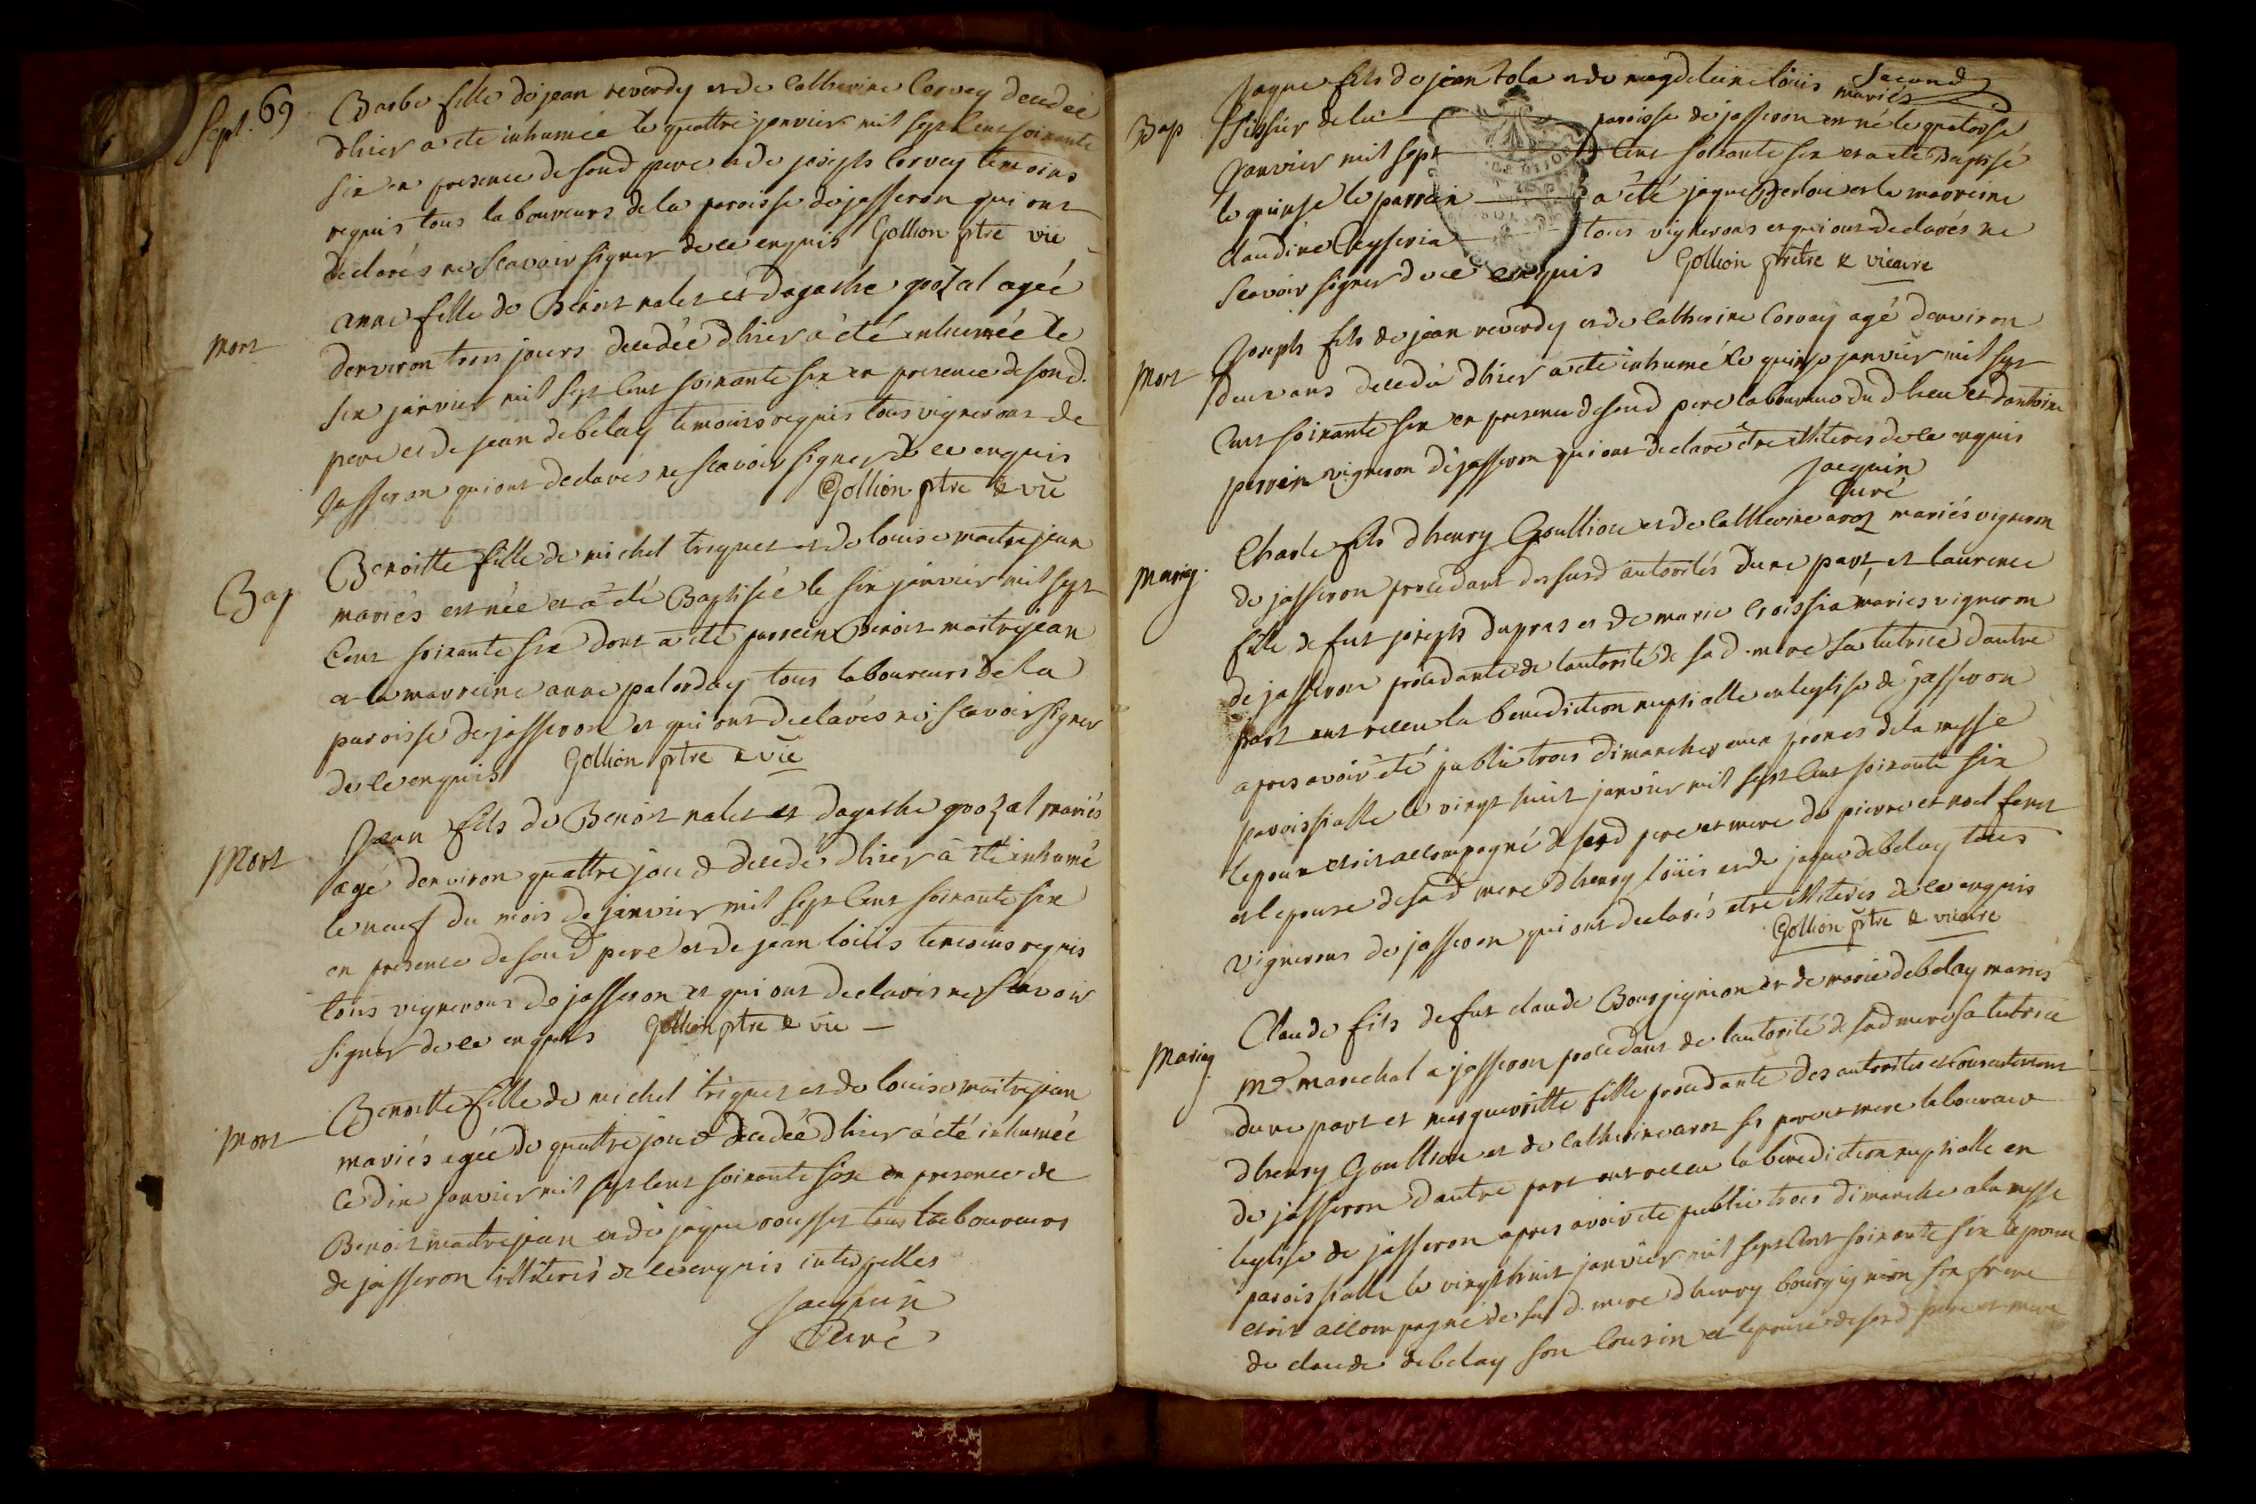 Sept. 69
Barbe fille de jean reverdy et de Catherine Corvey decedée
dhier a ete inhumée le quattre janvier mil sept Cent soixante
six en presence de sond pere et de joseph Corvey temoins
requis tous laboureurs de la paroisse de jasseron qui ont
declarés ne scavoir signer de ce enquis Gollion ptre vic
mort
anne fille de Benoit nalet et dagathe gozal agée
denviron trois jours decedée dhier a été inhumée le
six janvier mil sept Cent soixante six en presence de sond.
pere et de jean debelay temoins requis tous vignerons de
Jasseron qui ont declarés ne scavoir signer de ce enquis
Gollion ptre & vic
Bap
Benoitte fille de michel triquet et de louise maitrejean
mariés est née et a été Baptisée le six janvier mil sept
Cent soixante six dont a été parrein Benoit maitrejean
et la marreine anne palorday tous laboureurs de la
paroisse de jasseron et qui ont declarés ne scavoir signer
de ce enquis Gollion ptre & vic
Mort
Jean fils de Benoit nalet et dagathe gozal mariés
agé denviron quattre jours decedé dhier a été inhumé
le neuf du mois de janvier mil sept Cent soixante six
en presence de sond pere et de jean loüis temoins requis
tous vignerons de jasseron et qui ont declarés ne scavoir
signer de ce enquis Gollion ptre & vic
mort
Benoitte fille de michel triquet et de louise maitrejean
mariés agée de quattre jours decedée dhier a été inhumée
le dix janvier mil sept Cent soixante six en presence de
Benoit maitrejean et de jaque rousset tous laboureurs
de jasseron illiterés de ce enquis interpelles
Jacquin
Curé
Second
Jaque fils de jean Tola et de magdeleine loüis mariés
Bap
paroisse de jasseron est né le quatorse
Janvier mil sept Cent soixante six et a ete Baptisé
le quinse le parrein a été jaque et la marreine
Claudine tous vignerons et qui ont declarés ne
scavoir signer de ce enquis Gollion prêtre & vicaire
Mort
Joseph fils de jean reverdy et de Catherine Corvey agé denviron
deux ans decedé dhier a ete inhumé le quinse janvier mil sept
Cent soixante six en presence de sond pere laboureur dud lieu et dantoine
perrin vigneron de jasseron qui ont declaré être illiterés de ce enquis
Jacquin
Curé
Mariag.
Charle fils dhenry Goullion et de Catherine aroz mariés vigneron
de jasseron procedant des susd autorités dune part, et laurence
fille de fut joseph dupras et de marie Croissia mariés vigneron
de jasseron procedante de lautorité de sad. mere sa tutrice dautre
part ont receu la benediction nuptialle en leglise de jasseron
apres avoir été publié trois dimanches aux prônes de la messe
paroissialle le vingt huit janvier mil sept Cent soixante six
lepoux etoit accompagné de sesd pere et mere de pierre et noel feret
et lepouse de sad mere dhenry loüis et de jaque debelay tous
vignerons de jasseron qui ont declarés etre illiterés de ce enquis
Gollion ptre & vicaire
Mariag
Claude fils de fut claude Bourgignion et de marie debelay mariés
Mre marechal a jasseron procedant de lautorité de sad mere sa tutrice
dune part et marguerittte fille procedante des autorités et Consentement
dhenry Goullion et de Catherine aroz ses pere et mere laboureur
de jasseron dautre part ont receu la benediction nuptialle en
leglise de jasseron apres avoir ete publié trois dimanche a la messe
paroissialle le vingt huit janvier mil sept Cent soixante six lepoux
etoit accompagné de sad. mere dhenry bourgignion son frere
de claude debelay son Cousin et lepouse de sesd pere et mere